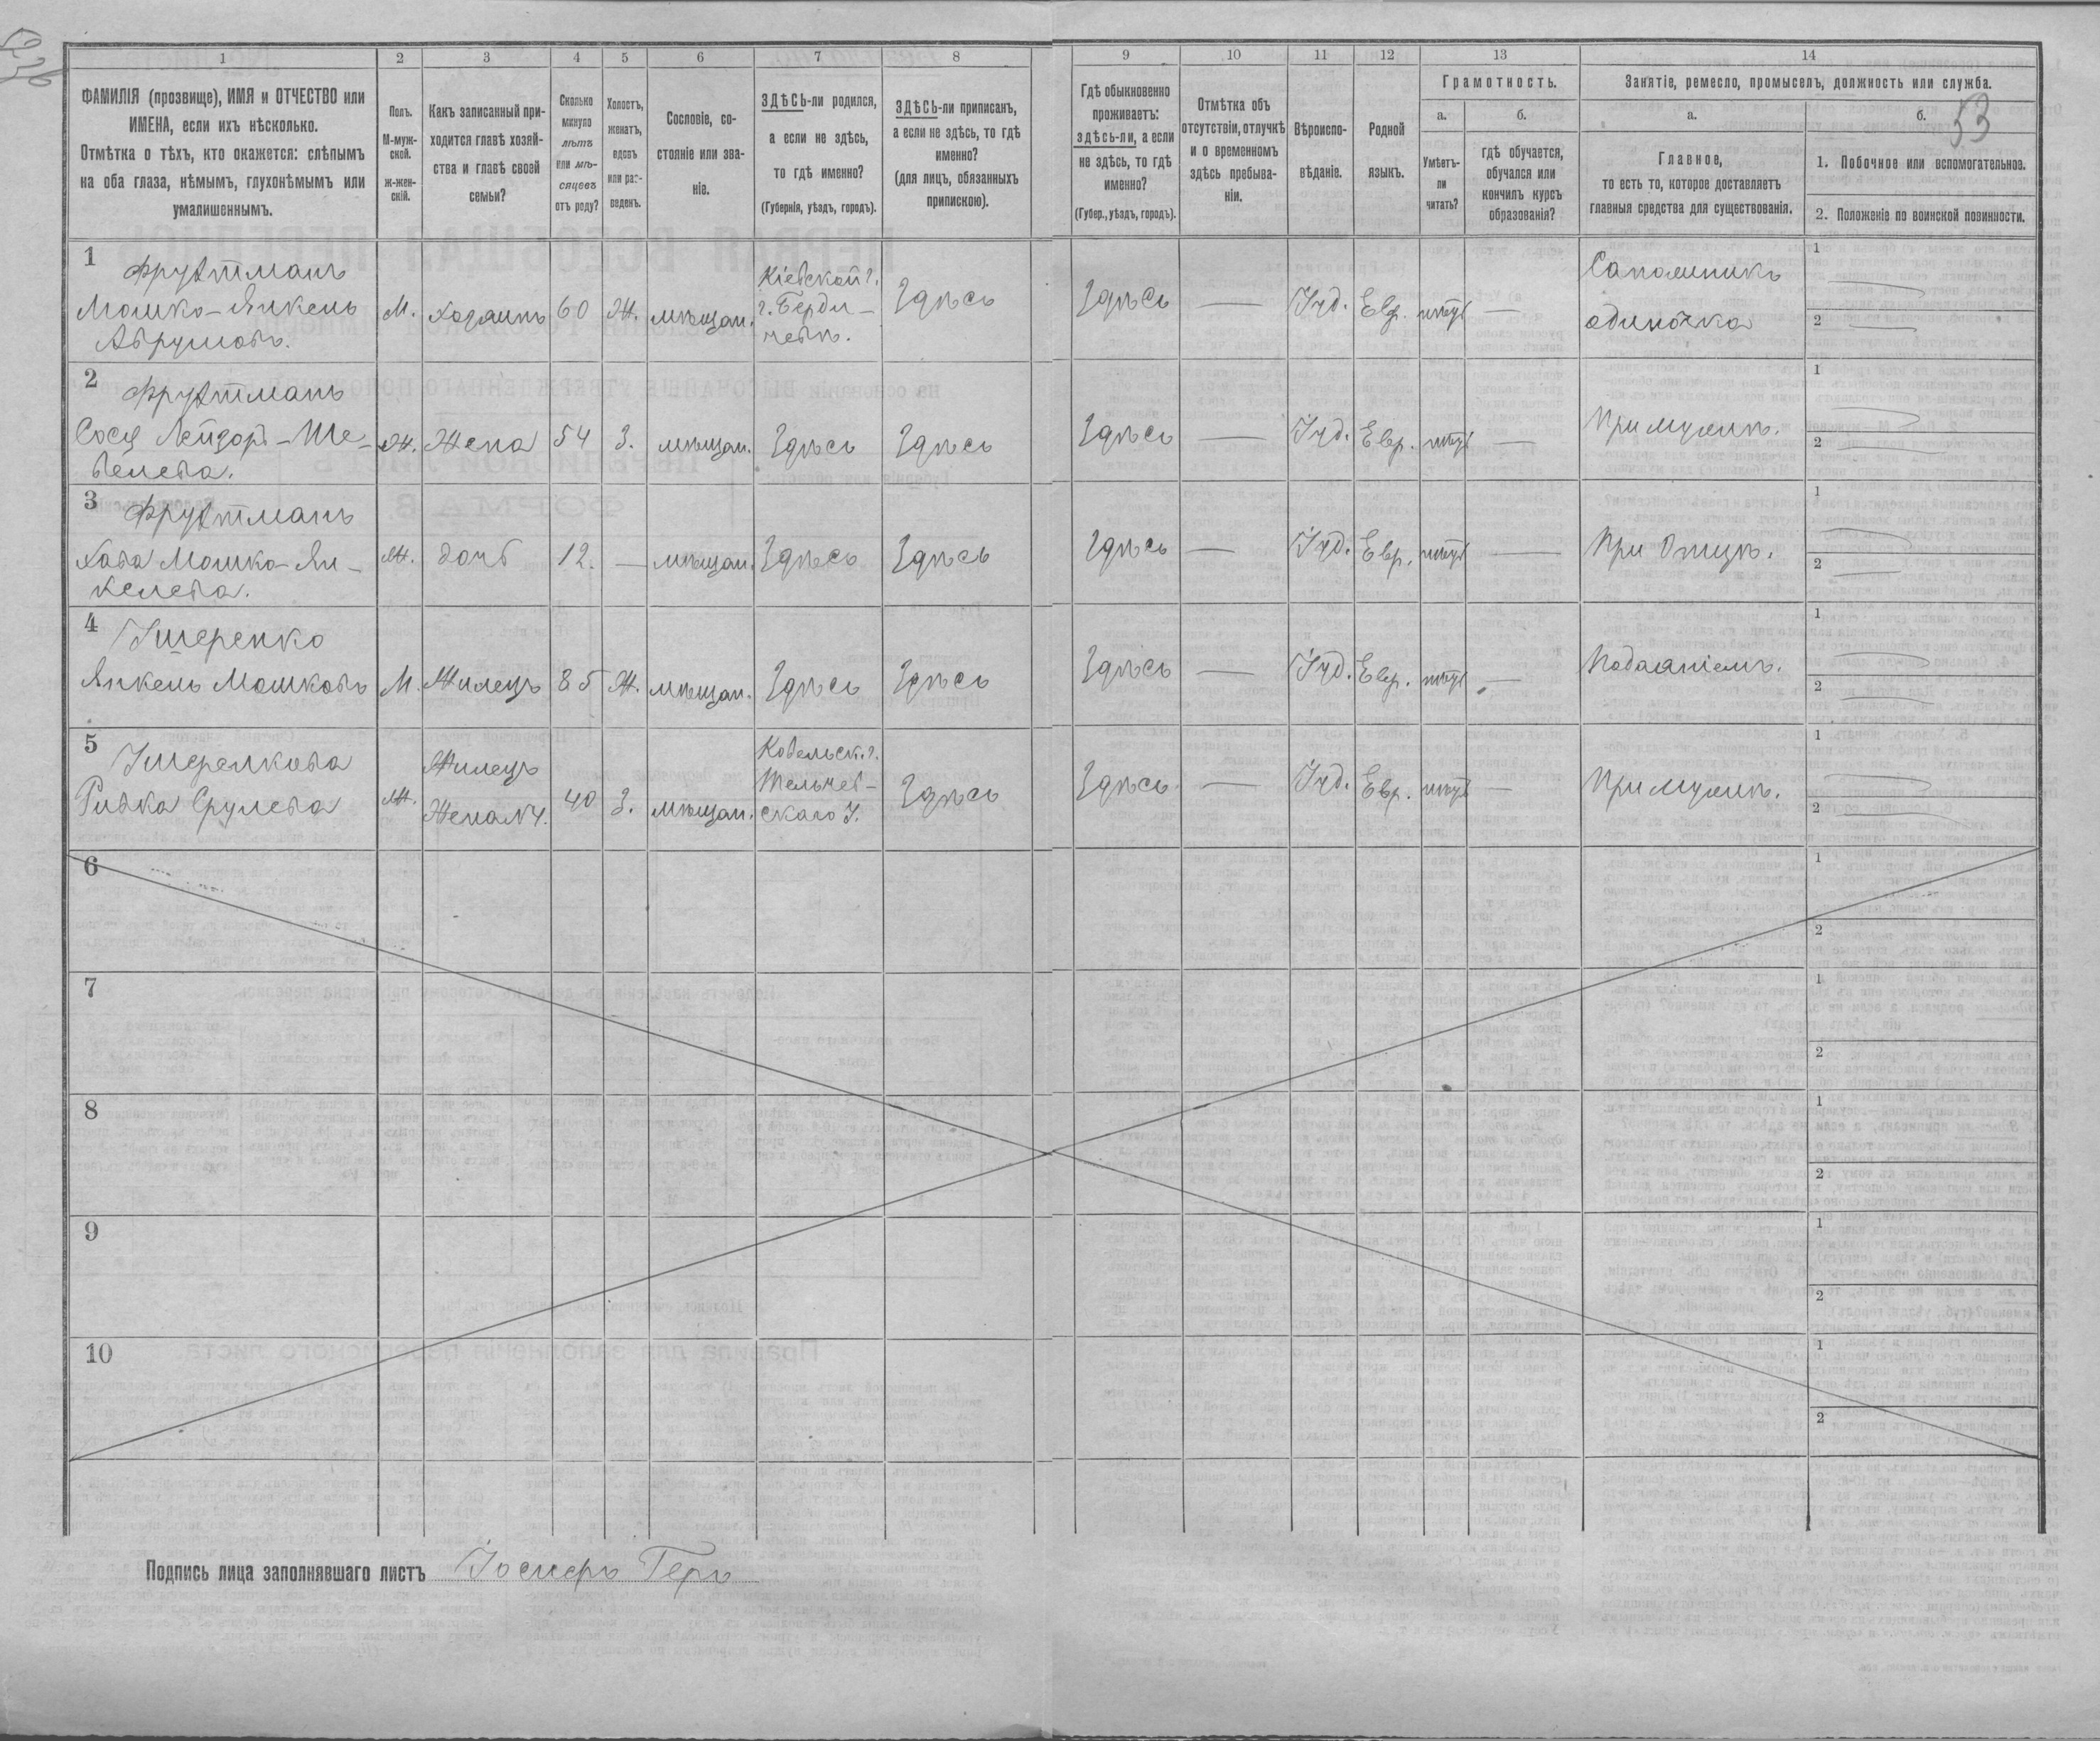 53
1 2 3 4 5 6 7 8 9 10 11 12 13 14
ФАМИЛІЯ (прозвище), ИМЯ и ОТЧЕСТВО или
ИМЕНА, если ихъ нѣсколько.
Отмѣтка о тѣхъ, кто окажется: слѣпымъ
на оба глаза, нѣмымъ, глухонѣмымъ или
умалишеннымъ.
Полъ.
М-муж-
ской.
Ж-жен-
скій.
Какъ записанный при-
ходится главѣ хозяй-
ства и главѣ своей
семьи?
Сколько
минуло
лѣтъ
или мѣ-
сяцевъ
отъ роду?
Холостъ,
женатъ,
вдовъ
или раз-
веденъ.
Сословіе, со-
стояніе или зва-
ніе.
ЗДѢСЬ-ли родился,
а если не здѣсь,
то гдѣ именно?
(Губернія, уѣздъ, городъ).
ЗДѢСЬ-ли приписанъ,
а если не здѣсь, то гдѣ
именно?
(для лицъ, обязанныхъ
припискою).
Гдѣ обыкновенно
проживаетъ:
здѣсь-ли, а если
не здѣсь, то гдѣ
именно?
(Губер., уѣздъ, городъ).
Отмѣтка объ
отсутствіи, отлучкѣ
и о временномъ
здѣсь пребыва-
ніи.
Вѣроиспо-
вѣданіе.
Родной
языкъ.
Грамотность.
а.
Умѣетъ-
ли
читать?
б.
гдѣ обучается,
обучался или
кончилъ курсъ
образованія?
Занятіе, ремесло, промыселъ, должность или служба.
а.
Главное,
то есть то, которое доставляетъ
главныя средства для существованія.
б.
1. Побочное или вспомогательное.
2. Положеніе по воинской повинности.
1
Мошко-Янкель
Аврумовъ.
М. хозяинъ 60 Ж. мѣщан.
Кіевской г.
г. Берди-
чевъ.
Здѣсь Здѣсь — Іуд. Евр. —
Сапожникъ
одиночка
1 —
2 —
2
Ж. Жена 54 З. мѣщан. Здѣсь Здѣсь Здѣсь — Іуд. Евр. — При мужѣ.
1 —
2 —
3
Хава Мошко-Ян-
келева.
Ж. дочь 12. — мѣщан. Здѣсь Здѣсь Здѣсь — Іуд. Евр. — При Отцѣ.
1 —
2 —
4
Янкель Мошковъ М. Жилецъ 85 Ж. мѣщан. Здѣсь Здѣсь Здѣсь — Іуд. Евр. — Подаяніемъ.
1 —
2 —
5
Ривка Срулева Ж.
Жилецъ
Жена №4.
40 З. мѣщан.
скаго У.
Здѣсь Здѣсь — Іуд. Евр. — При мужѣ.
1 —
2 —
6
1
2
7
1
2
8
1
2
9
1
2
10
1
2
Подпись лица заполнявшаго листъ Іосифъ Геръ